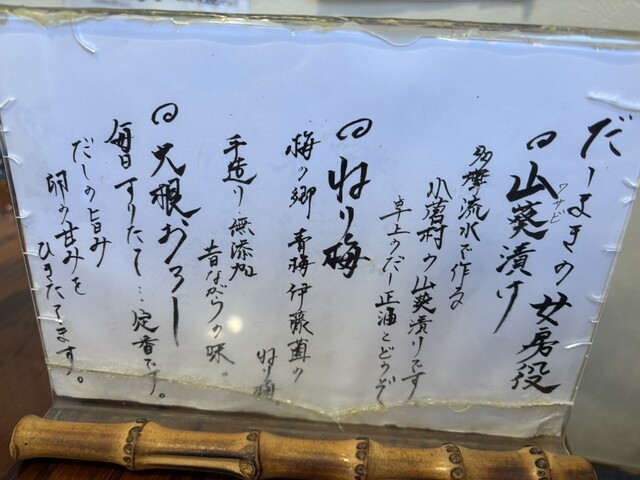 だーまきの女房役
山葵漬け
ワサビ
多摩流水で作る
小菅村の山葵漬りです
卓上のだし正油とどうぞ
ねり梅
梅の郷 青梅伊藤園の
ねり梅
手造り 無添加
昔ながらの味。
大根おろし
毎日すりたて…定番です。
だしの旨み
卵の甘みを
ひきたてます。